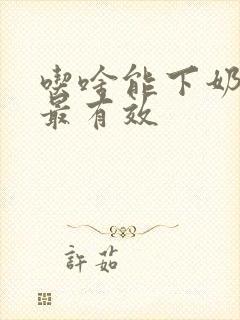 喫啥能下奶
最有效
許茹